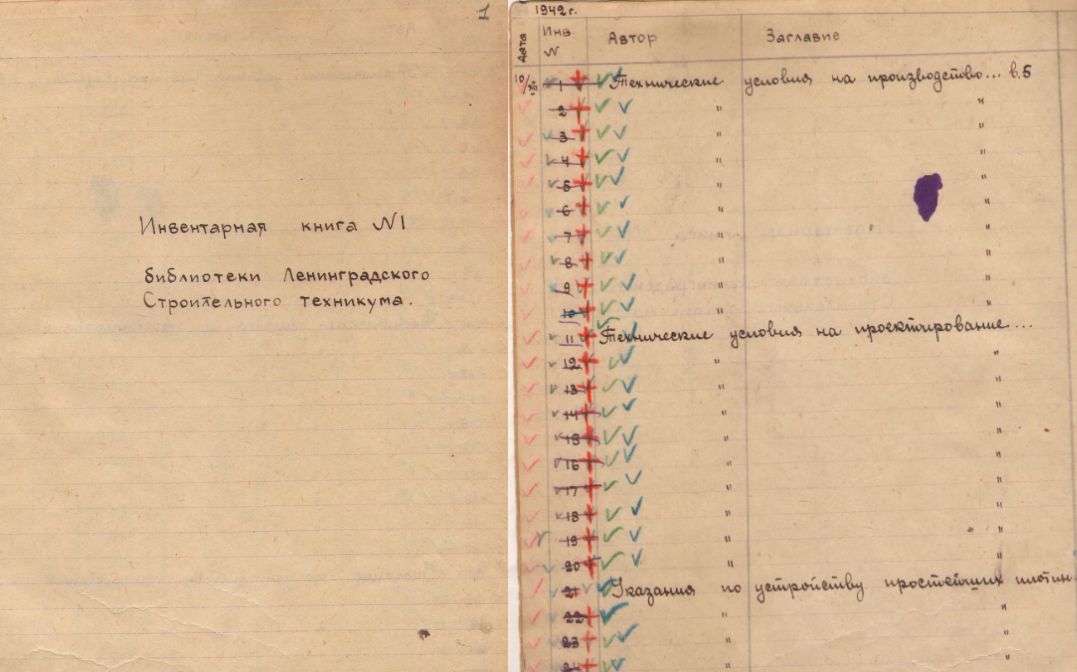 1
Инвентарная книга N1
библиотеки Ленинградского
Строительного техникума.
1942 г.
Дата Инв. N Автор Заглавие
10/XII 1 Технические условия на производство... в.5
2 " "
3 " "
4 " "
5 " "
6 " "
7 " "
8 " "
9 " "
10 " "
11 Технические условия на проектирование...
12 " "
13 " "
14 " "
15 " "
16 " "
17 " "
18 " "
19 " "
20 " "
21 Указания по устройству простейших плотин
22 " "
23 " "
24 " "